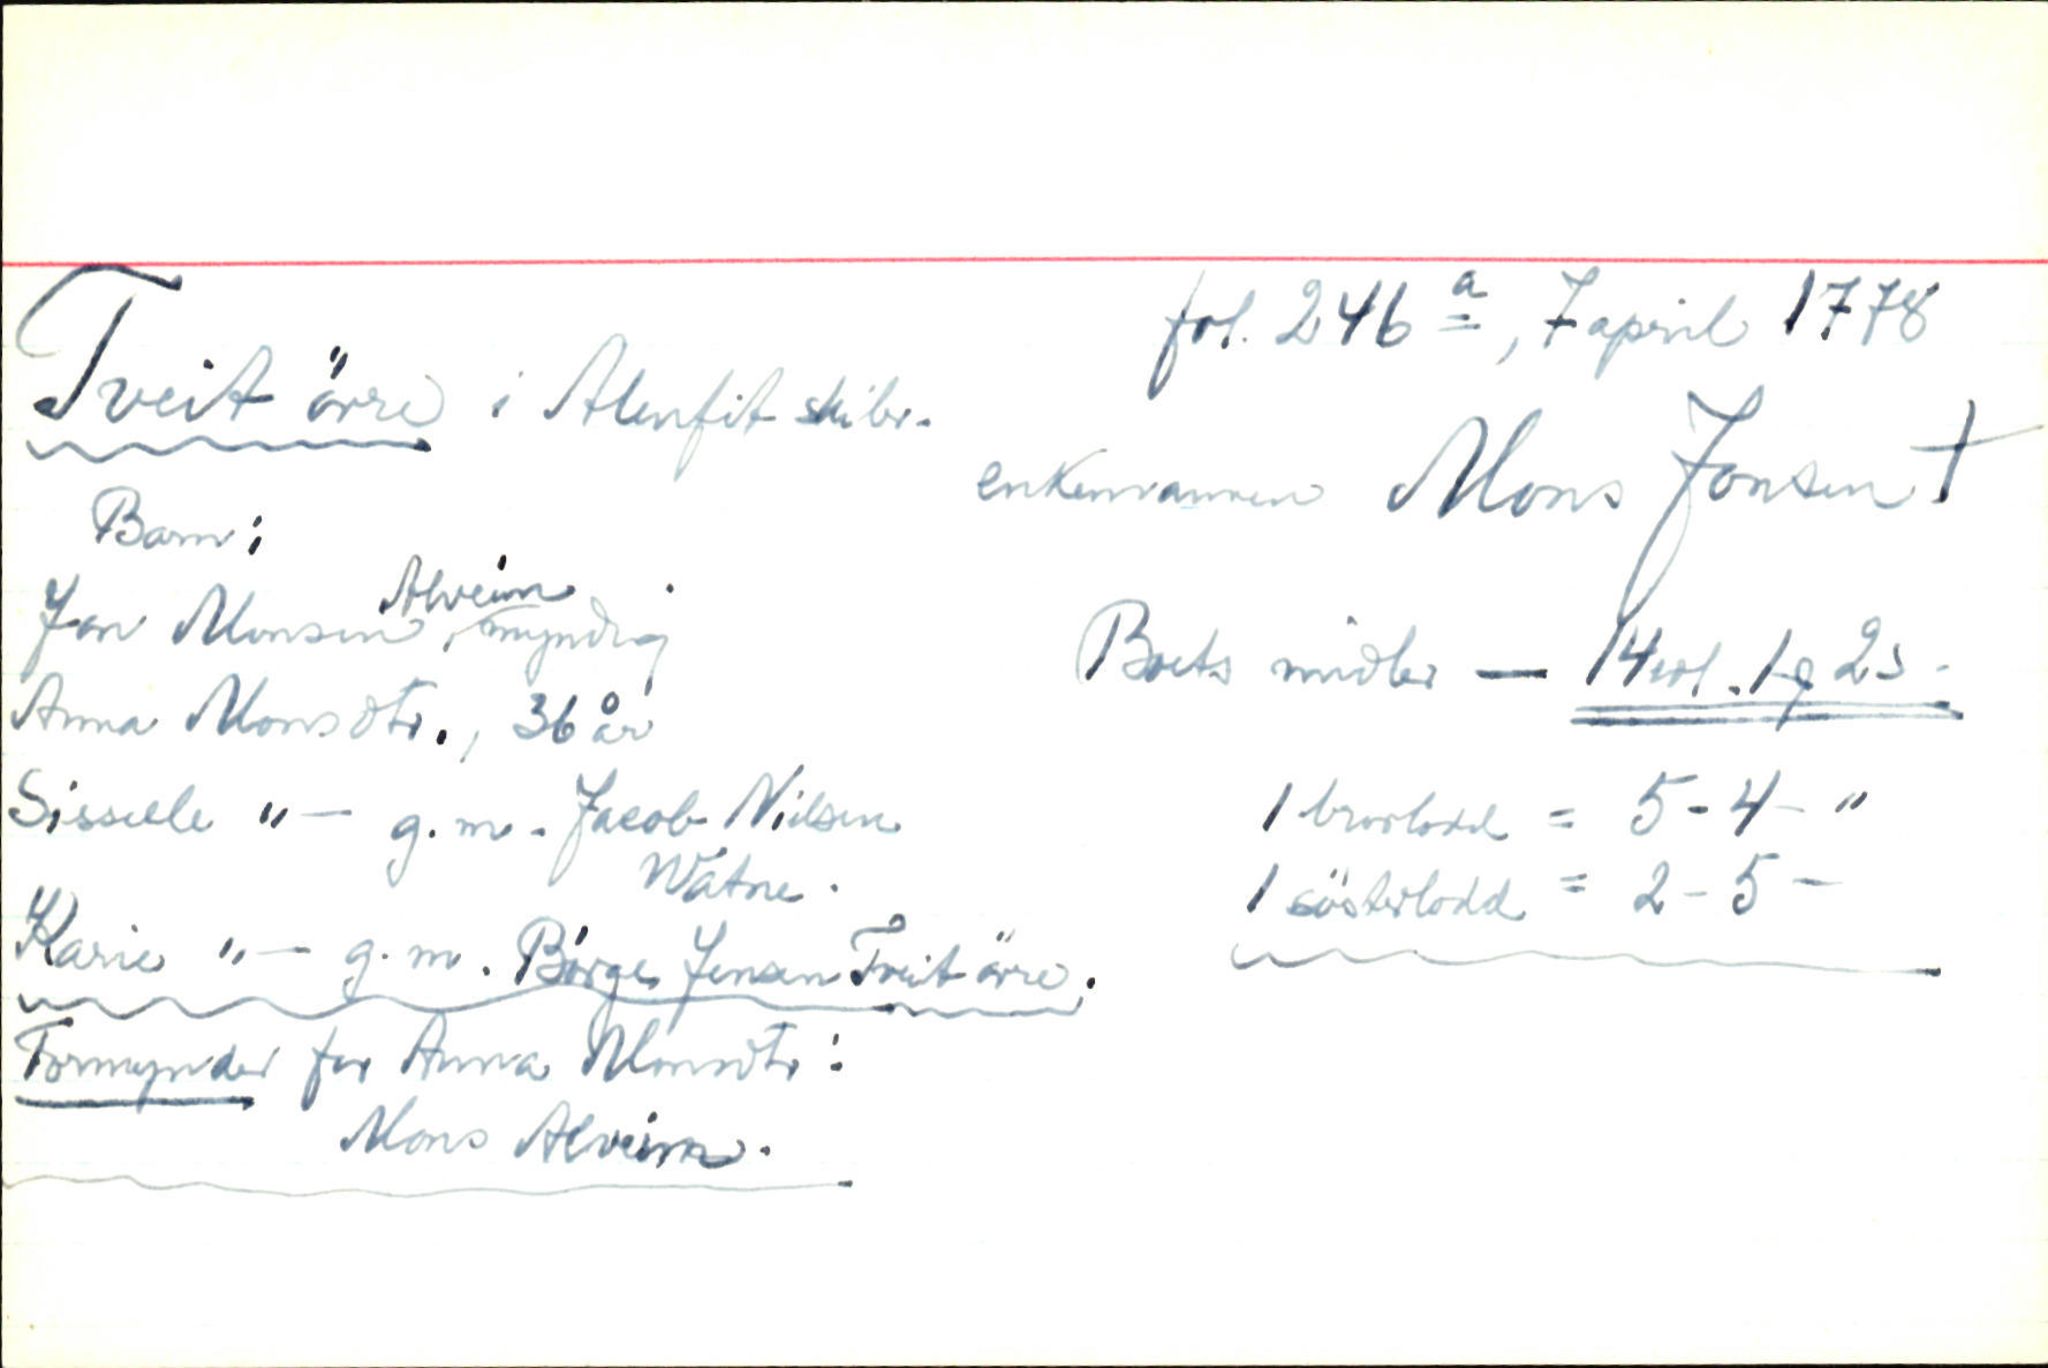 fol. 246 a, 7 april 1778
Tveit övre i Alenfit skibr.
enkemannen Mons Jonsen †
Barn:
Jon Monsen Alveim, myndig
Boets midler — 14 rd. 1 q 2 s.
Anna Monsdtr., 36 år
Sissele " — g.m. Jacob Nilsen
Watne.
1 brorlodd = 5 - 4 - "
1 sösterlodd = 2 - 5 -
Karie " — g.m. Børge Jensen Tveit övre.
Formynder for Anna Monsdtr:
Mons Alveim.